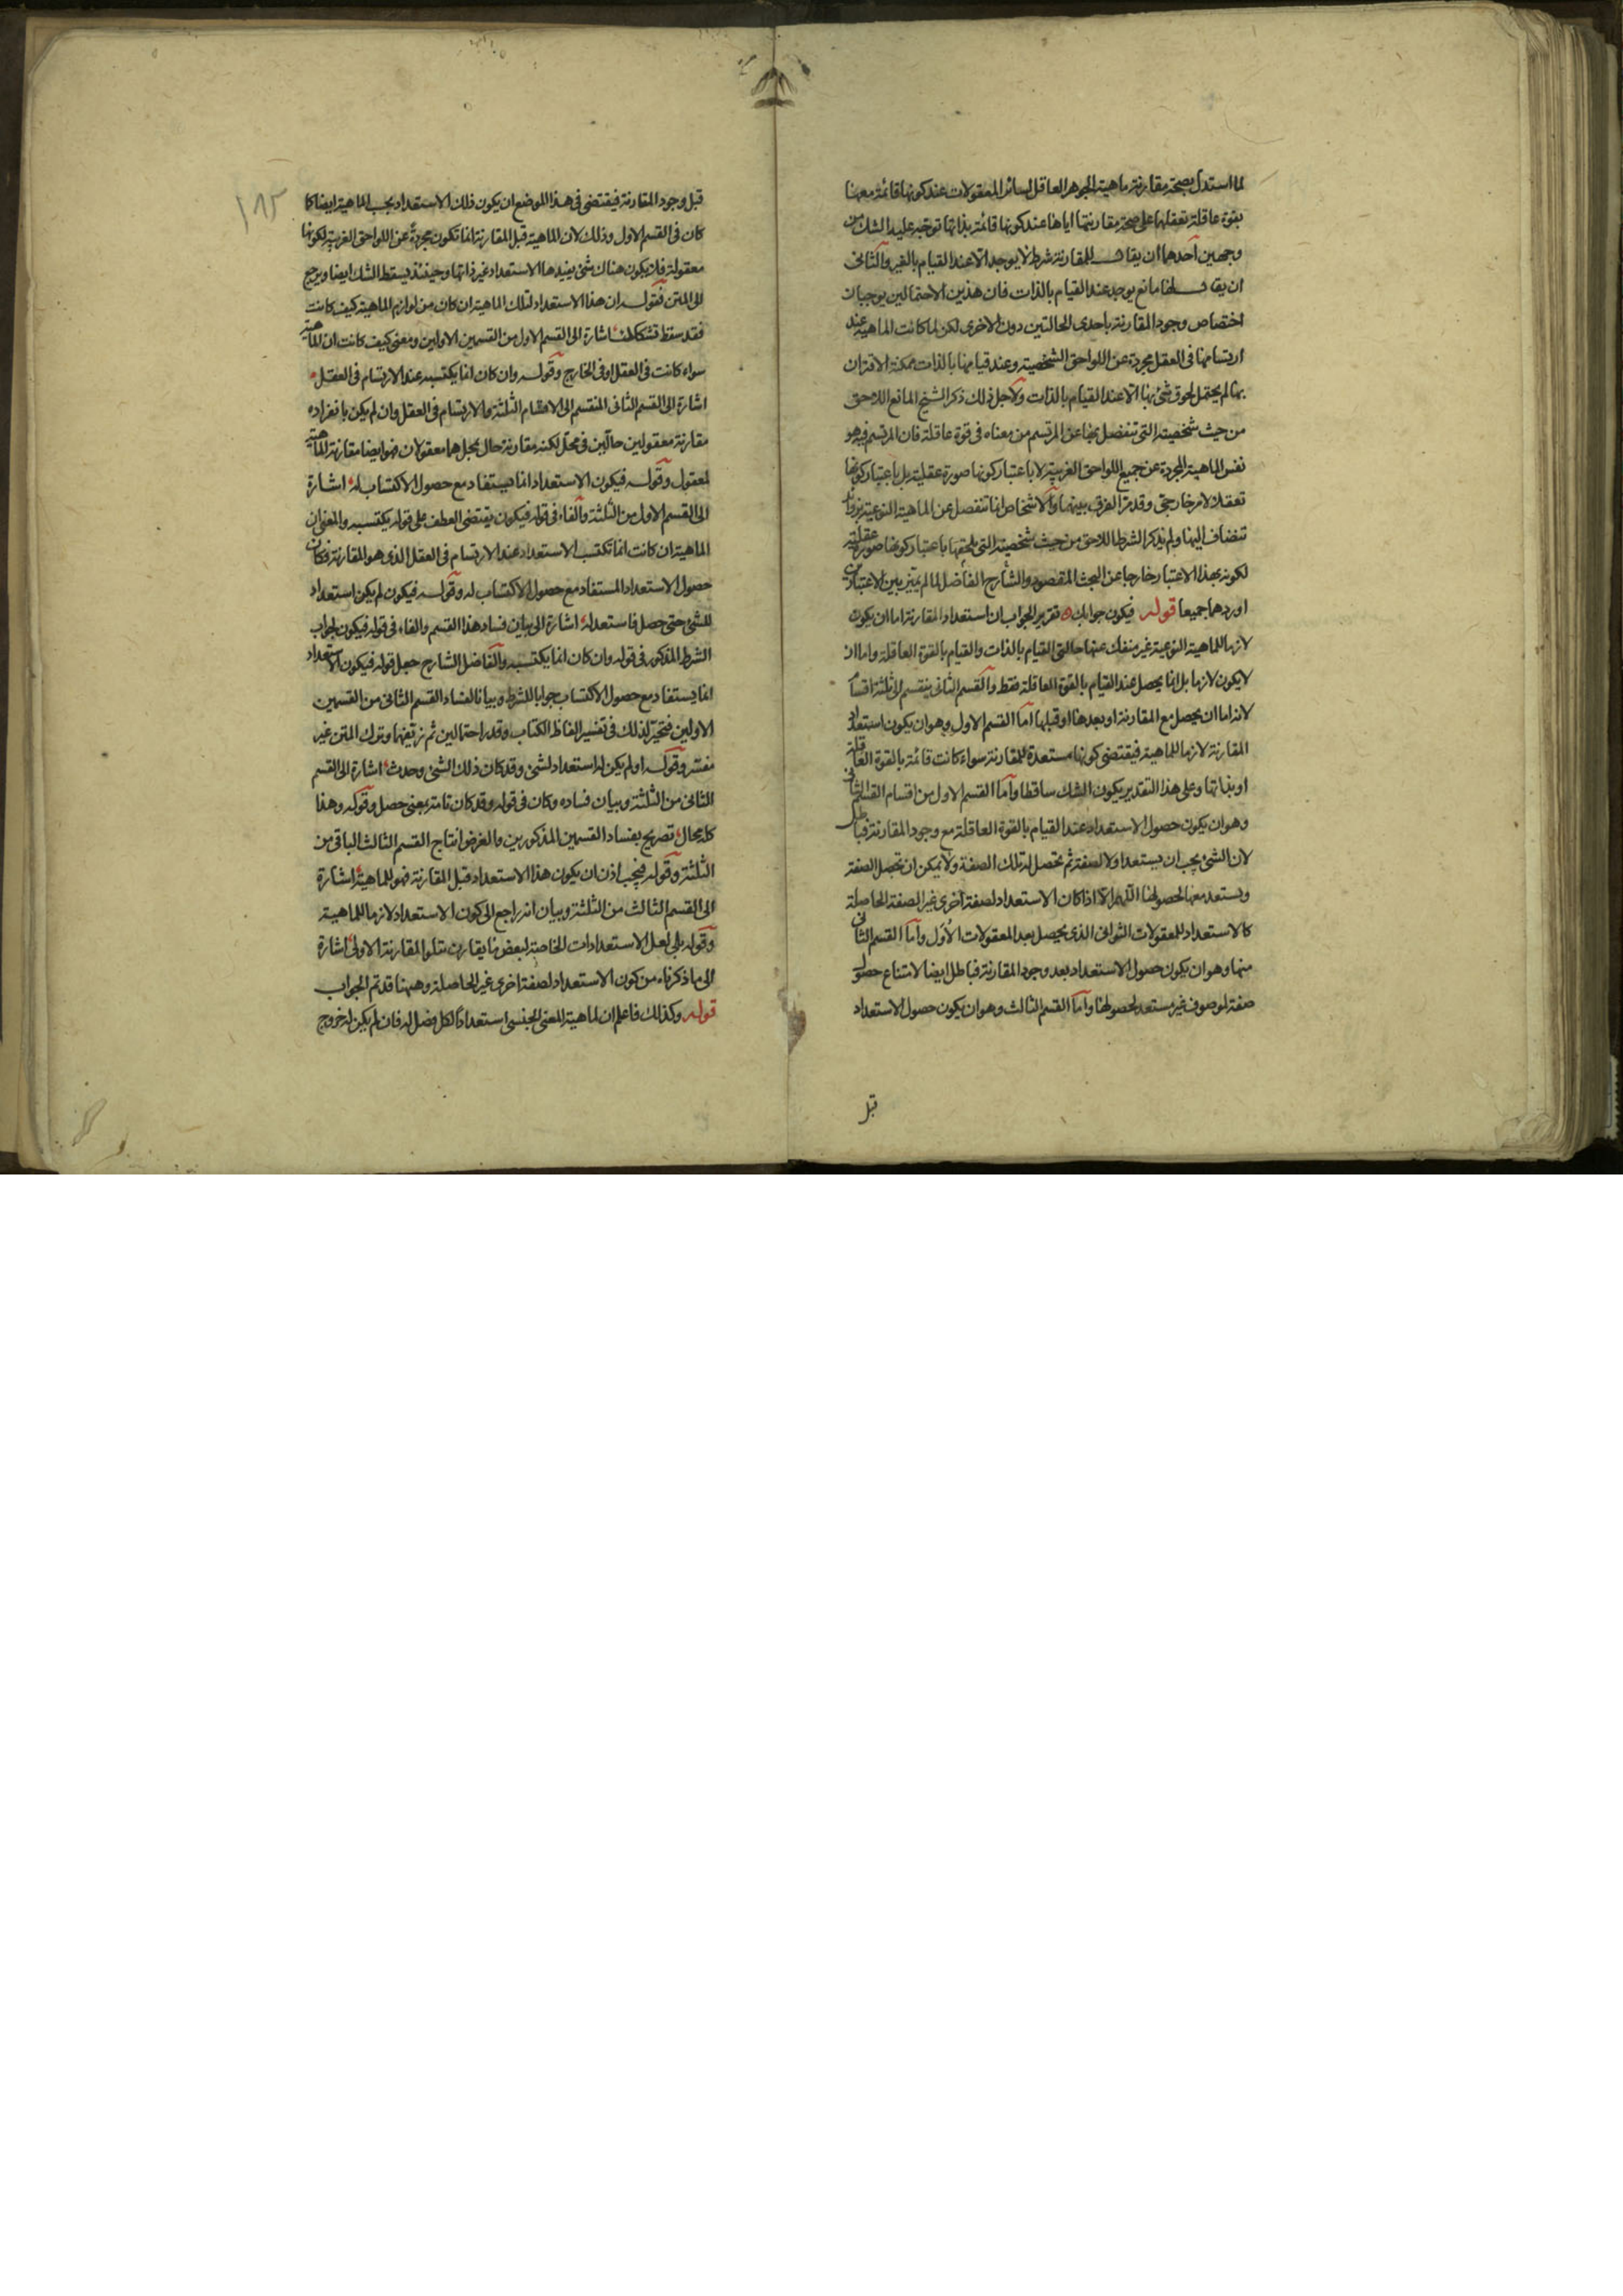 لما استدل بصحة مقارنة ماهية الجوهر العاقل لسائر المعقولات عند كونها قائمة معها
بقوة عاقلة تعقلها على صحة مقارنتها اياها عند كونها قائمة بذاتها توجه عليه الشك من
وجهين احدهما ان يقال للمقارنة شرط لا يوجد الا عند القيام بالغير والثانى
ان يقال لها مانع يوجد عند القيام بالذات فان هذين الاحتمالين يوجبان
اختصاص وجود المقارنة باحدى الحالتين دون الاخرى لكن لما كانت الماهية عند
ارتسامها فى العقل مجردة عن اللواحق الشخصية وعند قيامها بالذات ممكنة الاقتران
بها لم يحتمل لحوق شئ بها الا عند القيام بالذات ولاجل ذلك ذكر الشيخ المانع اللاحق
من حيث شخصيته التى تنفصل بها عن المرتسم من معناه فى قوة عاقلة فان المرتسم فيه هو
نفس الماهية المجردة عن جميع اللواحق الغريبة لا باعتبار كونها صورة عقلية بل باعتبار كونها
تعقلا لامر خارجى وقد مر الفرق بينهما والاشخاص انما تنفصل عن الماهية النوعية بزوائد
تنضاف اليها ولم يذكر الشرط اللاحق من حيث شخصيته التى يلحقها باعتبار كونها صورة عقلية
لكونه بهذا الاعتبار خارجا عن البحث المقصود والشارح الفاضل لما لم يتميز بين الاعتبارين
اوردهما جميعا قوله فيكون جوابك تقرير الجواب ان استعداد المقارنة اما ان يكون
لازما للماهية النوعية غير منفك عنها حالتى القيام بالذات والقيام بالقوة العاقلة واما ان
لا يكون لازما بل انما يحصل عند القيام بالقوة العاقلة فقط والقسم الثانى ينقسم الى ثلثة اقسام
لانه اما ان يحصل مع المقارنة او بعدها او قبلها اما القسم الاول وهو ان يكون استعداد
المقارنة لازما للماهية فيقتضى كونها مستعدة للمقارنة سواء كانت قائمة بالقوة العاقلة
او بذاتها وعلى هذا التقدير يكون الشك ساقطا واما القسم الاول من اقسام القسم الثانى
وهو ان يكون حصول الاستعداد عند القيام بالقوة العاقلة مع وجود المقارنة فباطل
لان الشئ يجب ان يستعد اولا لصفة ثم تحصل له تلك الصفة ولا يمكن ان تحصل الصفة
ويستعد معها لحصولها اللهم الا اذا كان الاستعداد لصفة اخرى غير الصفة الحاصلة
كالاستعداد للمعقولات الثوانى الذى يحصل بعد المعقولات الاول واما القسم الثانى
منها وهو ان يكون حصول الاستعداد بعد وجود المقارنة فباطل ايضا لامتناع حصول
صفة لموصوف غير مستعد لحصولها واما القسم الثالث وهو ان يكون حصول الاستعداد
قبل
١٨٢
قبل وجود المقارنة فيقتضى فى هذا الموضع ان يكون ذلك الاستعداد بحسب الماهية ايضا كما
كان فى القسم الاول وذلك لان الماهية قبل المقارنة انما تكون مجردة عن اللواحق الغريبة لكونها
معقولة فلا يكون هناك شئ يفيدها الاستعداد غير ذاتها وحينئذ يسقط الشك ايضا ويرجع
الى المتن فقوله ان هذا الاستعداد لتلك الماهية ان كان من لوازم الماهية كيف كانت
فقد سقط تشككك اشارة الى القسم الاول من القسمين الاولين ومعنى كيف كانت ان الماهية
سواء كانت فى العقل او فى الخارج وقوله وان كان انما يكتسبه عند الارتسام فى العقل
اشارة الى القسم الثانى المنقسم الى الاقسام الثلثة والارتسام فى العقل وان لم يكن بانفراده
مقارنة معقولين حالين فى محل لكنه مقارنة حال لمحل هما معقولان فهو ايضا مقارنة الماهية
لمعقول وقوله فيكون الاستعداد انما يستفاد مع حصول الاكتساب له اشارة
الى القسم الاول من الثلثة والفاء فى قوله فيكون يقتضى العطف على قوله يكتسبه والمعنى ان
الماهية ان كانت انما تكتسب الاستعداد عند الارتسام فى العقل الذى هو المقارنة فكان
حصول الاستعداد المستفاد مع حصول الاكتساب له وقوله فيكون لم يكن استعداد
للشئ حتى حصل فاستعد له اشارة الى بيان فساد هذا القسم والفاء فى قوله فيكون لجواب
الشرط المذكور فى قوله وان كان انما يكتسبه والفاضل الشارح جعل قوله فيكون الاستعداد
انما يستفاد مع حصول الاكتساب جوابا للشرط وبيانا لفساد القسم الثانى من القسمين
الاولين فتحير لذلك فى تفسير الفاظ الكتاب وقدر احتمالين ثم زيفهما وترك المتن غير
مفسر وقوله او لم يكن له استعداد لشئ وقد كان ذلك الشئ وحدث اشارة الى القسم
الثانى من الثلثة وبيان فساده وكان فى قوله وقد كان تامة بمعنى حصل وقوله وهذا
كله محال تصريح بفساد القسمين المذكورين والغرض انتاج القسم الثالث الباقى من
الثلثة وقوله فيجب اذن ان يكون هذا الاستعداد قبل المقارنة فهو للماهية اشارة
الى القسم الثالث من الثلثة وبيان انه راجع الى كون الاستعداد لازما للماهية
وقوله بلى لعل الاستعدادات الخاصة لبعض ما يقارن تتلو المقارنة الاولى اشارة
الى ما ذكرناه من كون الاستعداد لصفة اخرى غير الحاصلة وههنا قد تم الجواب
قوله وكذلك فاعلم ان لماهية المعنى الجنسى استعدادا لكل فصل له فان لم يكن له خروج